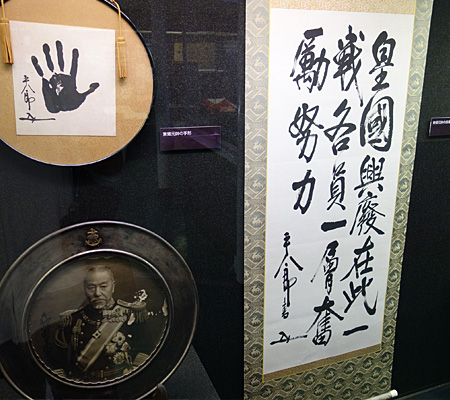 平八郎
東郷元帥の手形
皇國興廢在此一
戦各員一層奮
勵努力
平八郎書